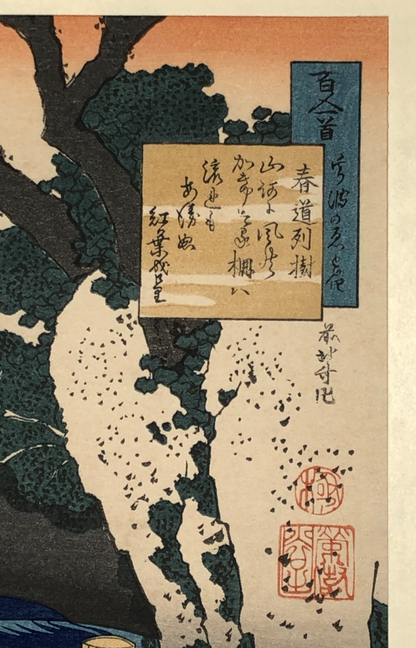 百人一首
うばかゑとき
前北斎卍
春道列樹
山河に風の
かけたる柵ハ
流れも
あへぬ
紅葉
極